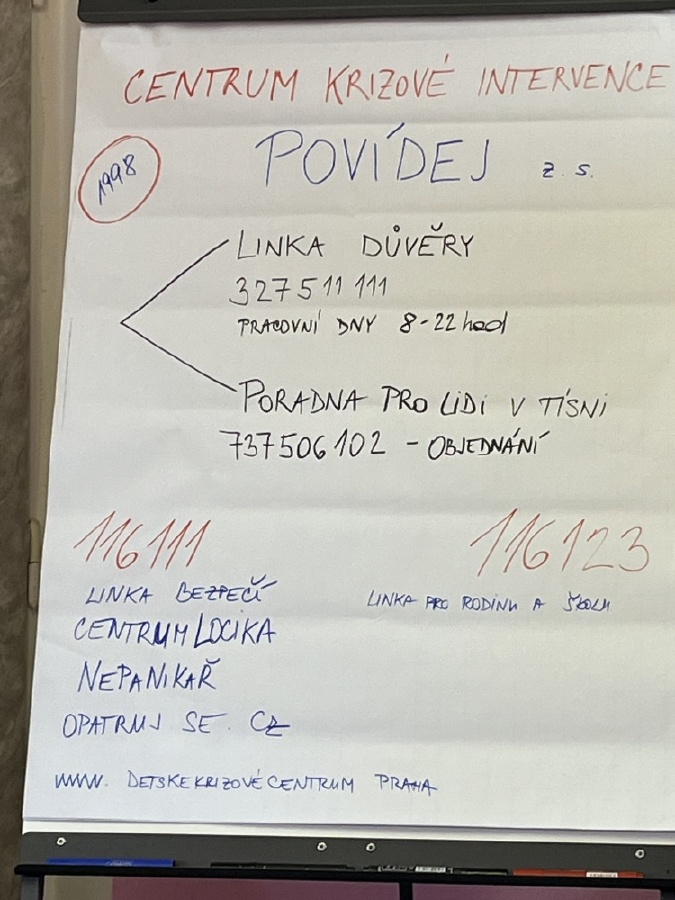 CENTRUM KRIZOVÉ INTERVENCE
1998
POVÍDEJ z. s.
LINKA DŮVĚRY
327511111
PRACOVNÍ DNY 8-22 hod
PORADNA PRO LIDI V TÍSNI
737506102 - OBJEDNÁNÍ
116111
LINKA BEZPEČÍ
CENTRUM LOCIKA
NEPANIKAŘ
OPATRUJ SE. CZ
116123
LINKA PRO RODINU A ŠKOLU
WWW. DETSKEKRIZOVÉCENTRUM PRAHA